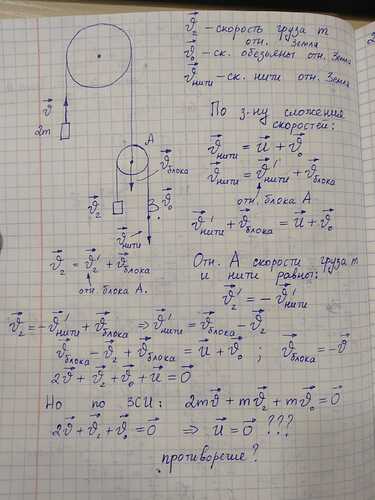 v⃗₂ - скорость груза m
отн. Земля
v⃗₀ - ск. обезьяны отн. Земля
v⃗нити - ск. нити отн. Земля
v⃗
2m
По з-ну сложения
скоростей:
v⃗нити = u⃗ + v⃗₀
v⃗нити = v⃗'нити + v⃗блока
отн. блока A
v⃗'нити + v⃗блока = u⃗ + v⃗₀
A
v⃗блока
v⃗₂
v⃗₀
v⃗нити
v⃗₂ = v⃗₂' + v⃗блока
отн. блока A.
Отн. A скорости груза m
и нити равны:
v⃗₂' = -v⃗'нити
v⃗₂ = -v⃗'нити + v⃗блока ⇒ v⃗'нити = v⃗блока - v⃗₂
v⃗блока - v⃗₂ + v⃗блока = u⃗ + v⃗₀ ; v⃗блока = -v⃗
2v⃗ + v⃗₂ + v⃗₀ + u⃗ = 0⃗
Но по ЗСИ: 2mv⃗ + mv⃗₂ + mv⃗₀ = 0⃗
2v⃗ + v⃗₂ + v⃗₀ = 0⃗ ⇒ u⃗ = 0⃗ ???
противоречие?